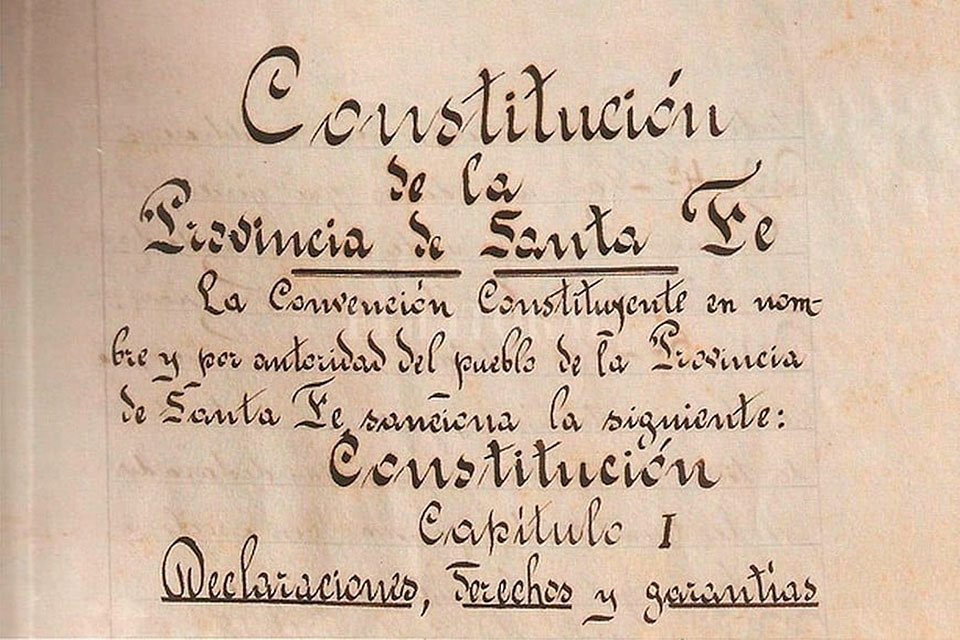 Constitución
de la
Provincia de Santa Fe
La Convención Constituyente en nom-
bre y por autoridad del pueblo de la Provincia
de Santa Fe, sanciona la siguiente:
Constitución
Capítulo I
Declaraciones, derechos y garantías